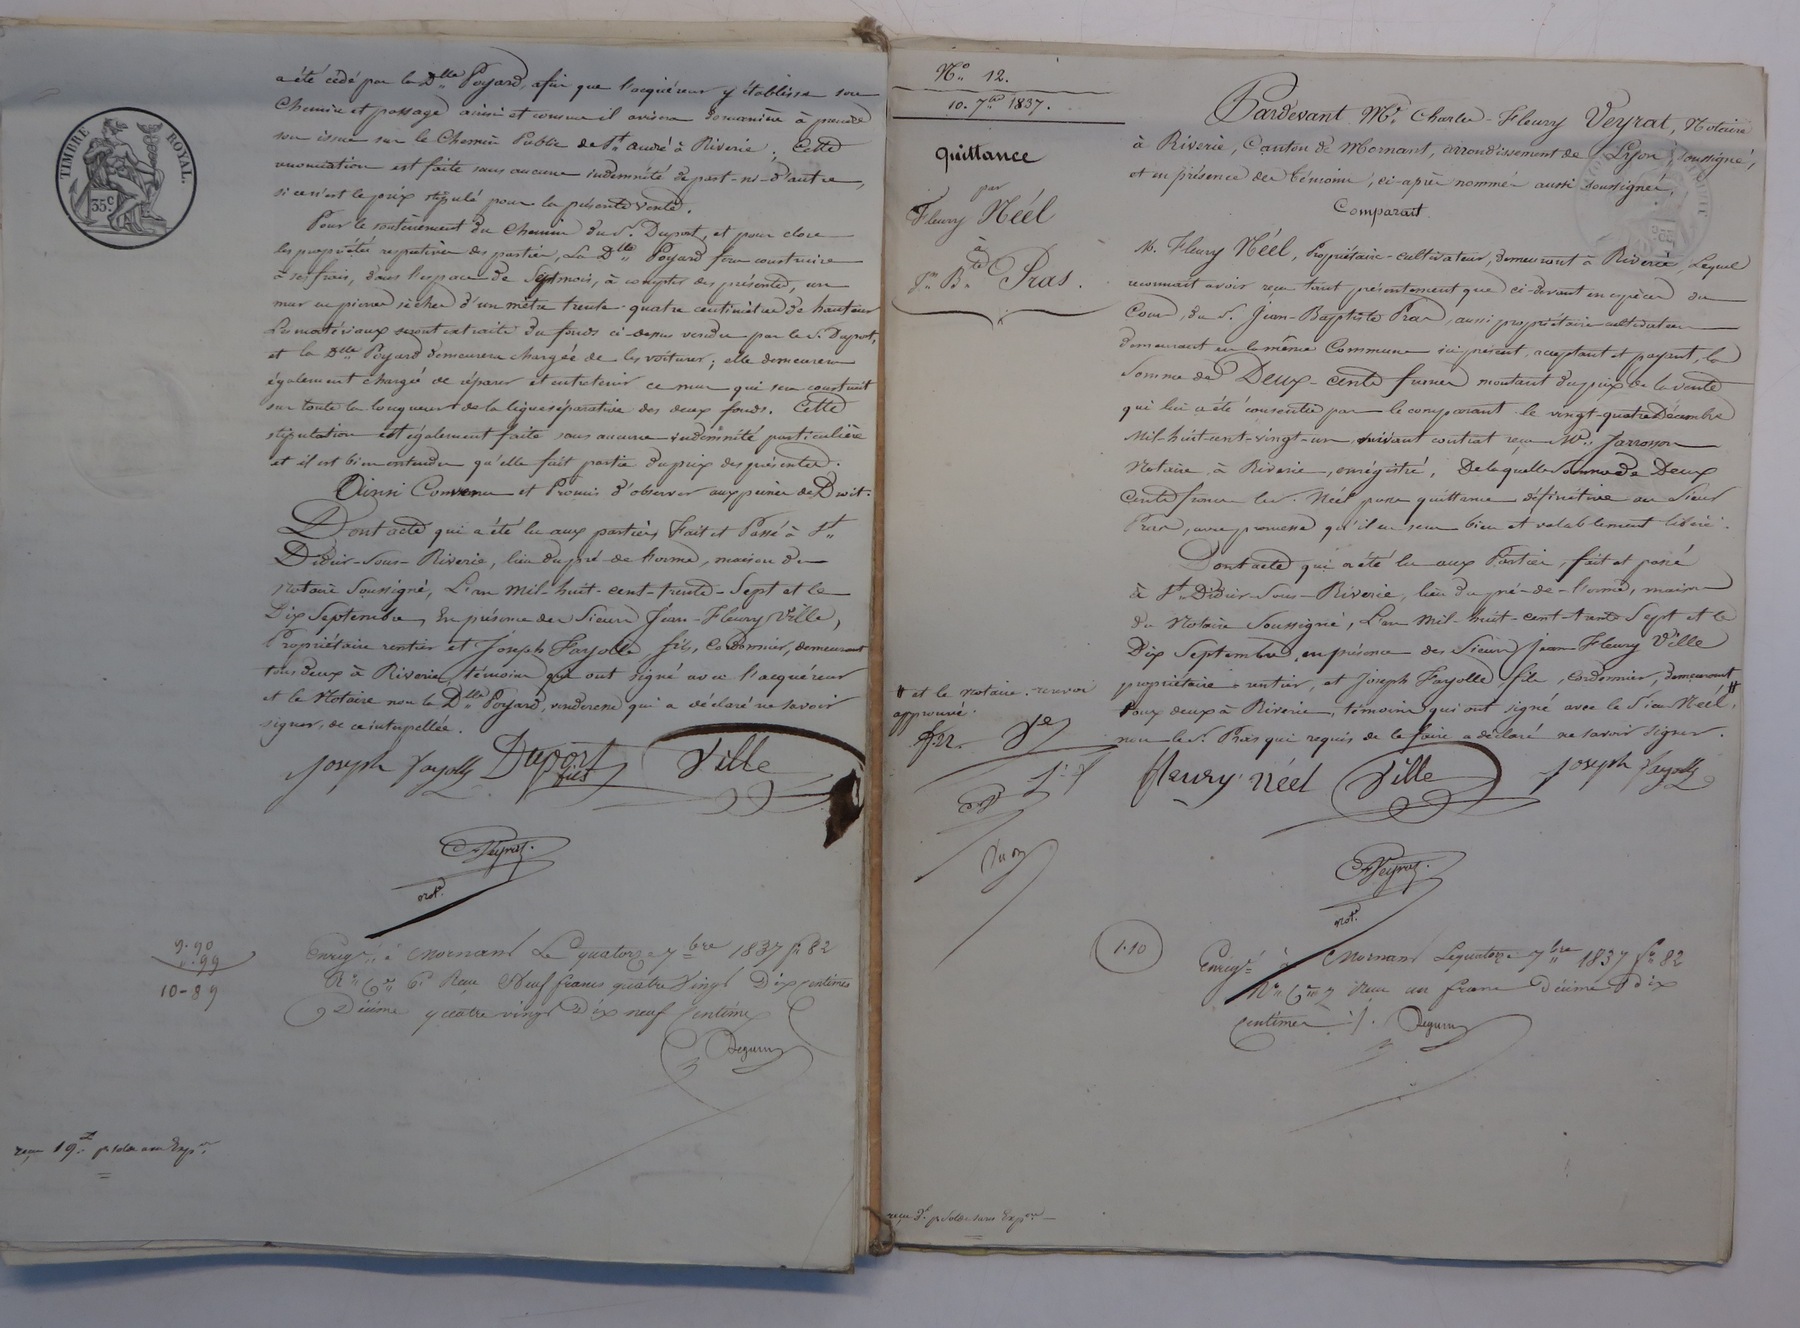 TIMBRE ROYAL.
35 c
a été cédé par la Dlle Poyard, afin que l'acquéreur y établisse son
chemin et passage ainsi et comme il avisera de manière à prendre
son issue sur le Chemin Public de St. André à Riverie. Cette
renonciation est faite sans aucune indemnité de part-ni-d'autre,
si ce n'est le prix stipulé pour la présente vente.
Pour le soutènement du Chemin du Sr. Duport, et pour clore
les propriétés respectives des parties, La Dlle Poyard fera construire
à ses frais, dans l'espace de Sept mois, à compter des présentes, un
mur en pierres sèches d'un mètre trente-quatre centimètres de hauteur
Les matériaux seront extraits du fonds ci-dessus vendu par le Sr. Duport,
et la Dlle Poyard demeurera chargée de les voiturer; elle demeurera
également chargée de réparer et entretenir ce mur qui sera construit
sur toute la longueur de la ligne séparative des deux fonds. Cette
stipulation est également faite sans aucune indemnité particulière
et il est bien entendu qu'elle fait partie du prix des présentes.
Ainsi Convenu et Promis d'observer aux peines de Droit.
Dont acte qui a été lu aux parties Fait et Passé à St.
Didier-Sous-Riverie, lieu du pré-de-l'orme, maison du
Notaire Soussigné, L'an Mil-huit-cent-trente-Sept et le
Dix Septembre, En présence des Sieurs Jean-Fleury Ville,
Propriétaire rentier et Joseph Fayolle, fils, Cordonnier, demeurant
tous deux à Riverie, témoins qui ont signé avec l'acquéreur
et le Notaire non la Dlle Poyard, venderesse qui a déclaré ne savoir
signer, de ce interpellée.
Joseph Fayolle Duport fils Ville
CFVeyrat.
not.
9.90
.99
10-89
Enregé. à Mornant Le quatorze 7bre 1837 fo 82
Ro Cse 6. Reçu Neuf francs quatre vingt Dix centimes
Décime quatre vingt Dix neuf Centimes
Deguin
reçu 19 pr solde avec Expon.
No. 12.
10. 7bre 1837.
Quittance
par
Fleury Néél
à
Jn. Bte. Pras.
Pardevant Me. Charles-Fleury Veyrat, Notaire
à Riverie, Canton de Mornant, arrondissement de Lyon, soussigné,
et en présence des témoins, ci-après nommés aussi soussignés,
Comparait
M. Fleury Néél, Propriétaire-cultivateur, demeurant à Riverie, Lequel
reconnait avoir reçu tant présentement que ci-devant en espèces du
Cours, du Sr. Jean-Baptiste Pras, aussi propriétaire cultivateur
demeurant en la même Commune ici présent, acceptant et payant, la
Somme de Deux-cents francs montant du prix de la vente
qui lui a été consentie par le comparant le vingt-quatre Décembre
Mil-huit-cent-vingt-un, suivant contrat reçu Me. Jarrosson
Notaire, à Riverie, enregistré, De laquelle somme de Deux
Cents francs le Sr. Néél passe quittance définitive au Sieur
Pras, avec promesse qu'il en sera bien et valablement libéré.
Dont acte qui a été lu aux Parties, fait et passé
à St. Didier-Sous-Riverie, lieu du pré-de-l'orme, maison
du Notaire Soussigné, L'an Mil-huit-cent-trente Sept et le
Dix Septembre, en présence des Sieurs Jean-Fleury Ville
propriétaire-rentier, et Joseph Fayolle, fils, Cordonnier, demeurant
tous deux à Riverie, témoins qui ont signé avec le Sieur Néél, #
non le Sr. Pras qui requis de le faire a déclaré ne savoir signer.
# et le Notaire. renvoi
approuvé.
fleury. néel Ville Joseph Fayolle
CFVeyrat.
not.
1.10
Enregé. à Mornant Le quatorze 7bre 1837 fo 82
Ro Cse 7 Reçu un franc Décime Dix
Centimes ./. Deguin
reçu 3f. pr Solde sans Expon.